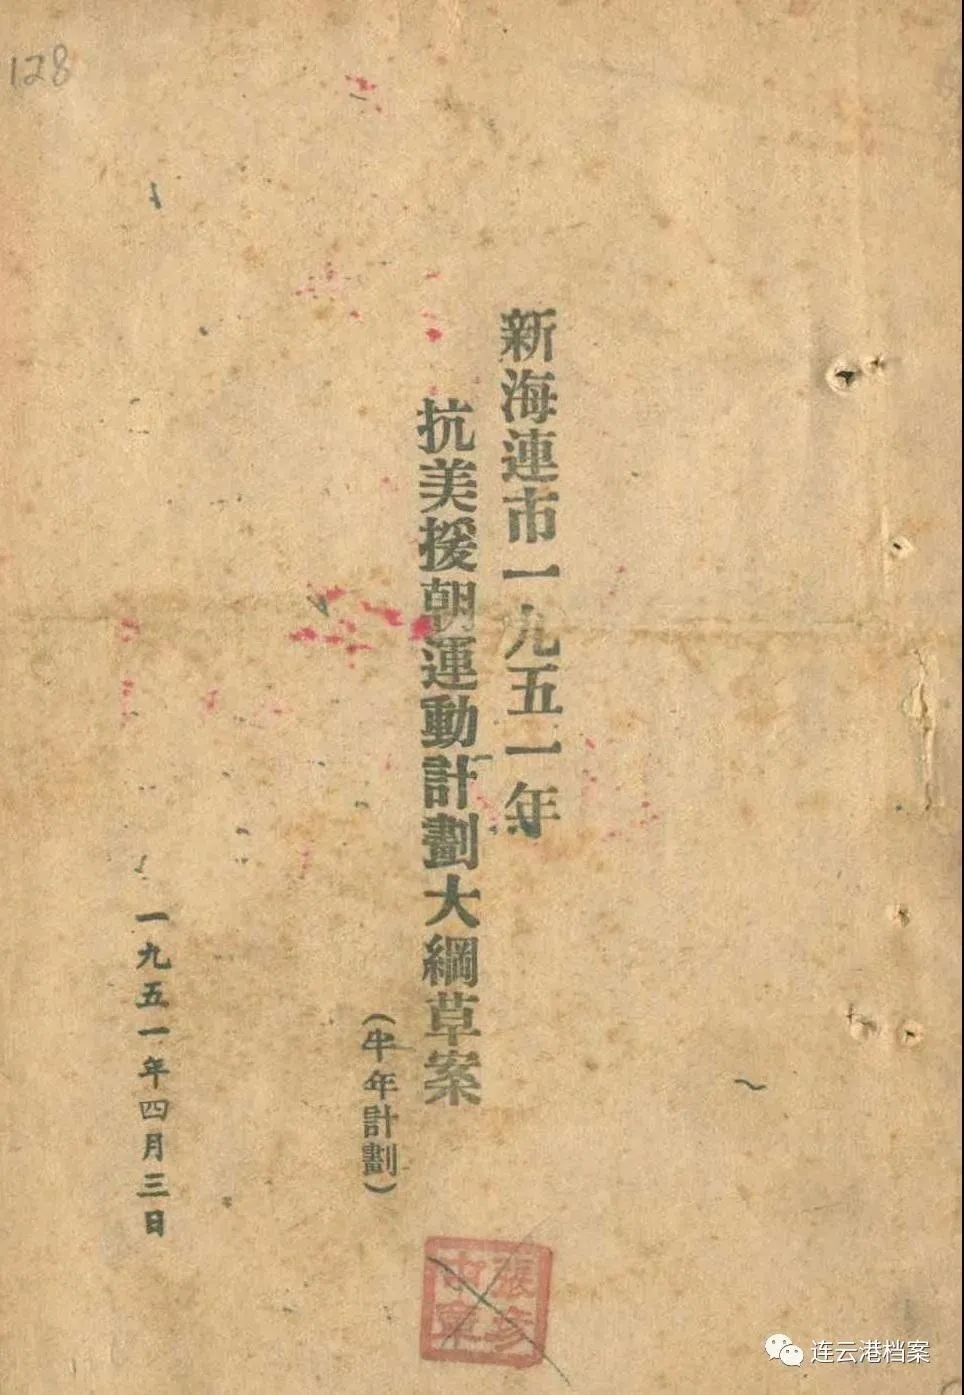 128
新海連市一九五一年
抗美援朝運動計劃大綱草案
(半年計劃)
一九五一年四月三日
張彦
连云港档案